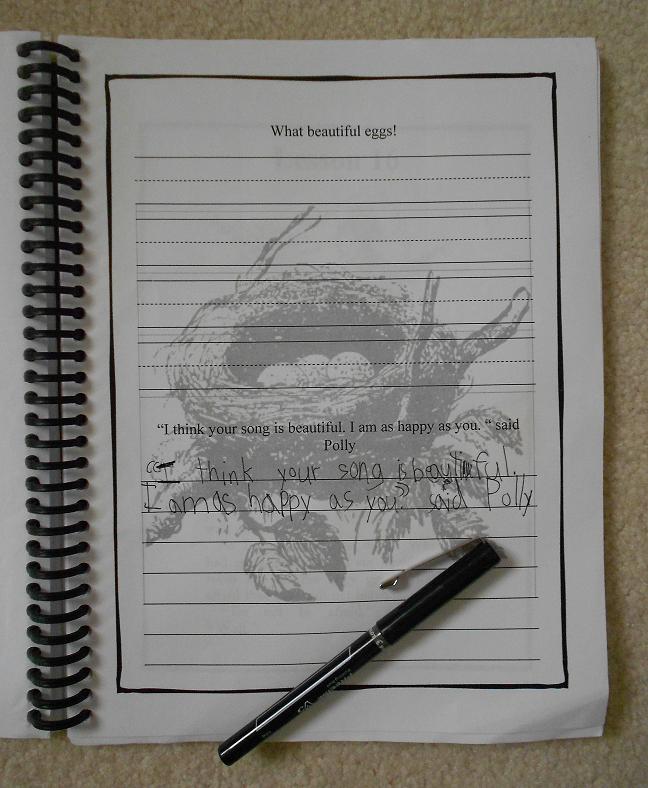 What beautiful eggs!
“I think your song is beautiful. I am as happy as you. “ said
Polly
“I think your song is beautiful.
I am as happy as you.” said Polly